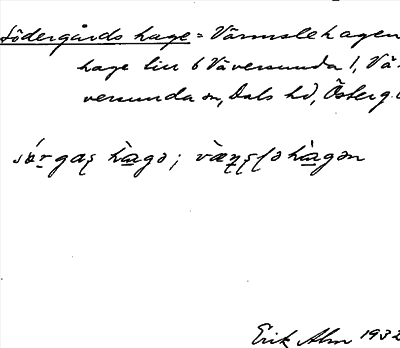 Södergårds hage = Värmslehagen
hage liu 6 Väversunda 1, Vä-
versunda sn, Dals hd, Österg.
hagə ; hagən
Erik Alm 1932